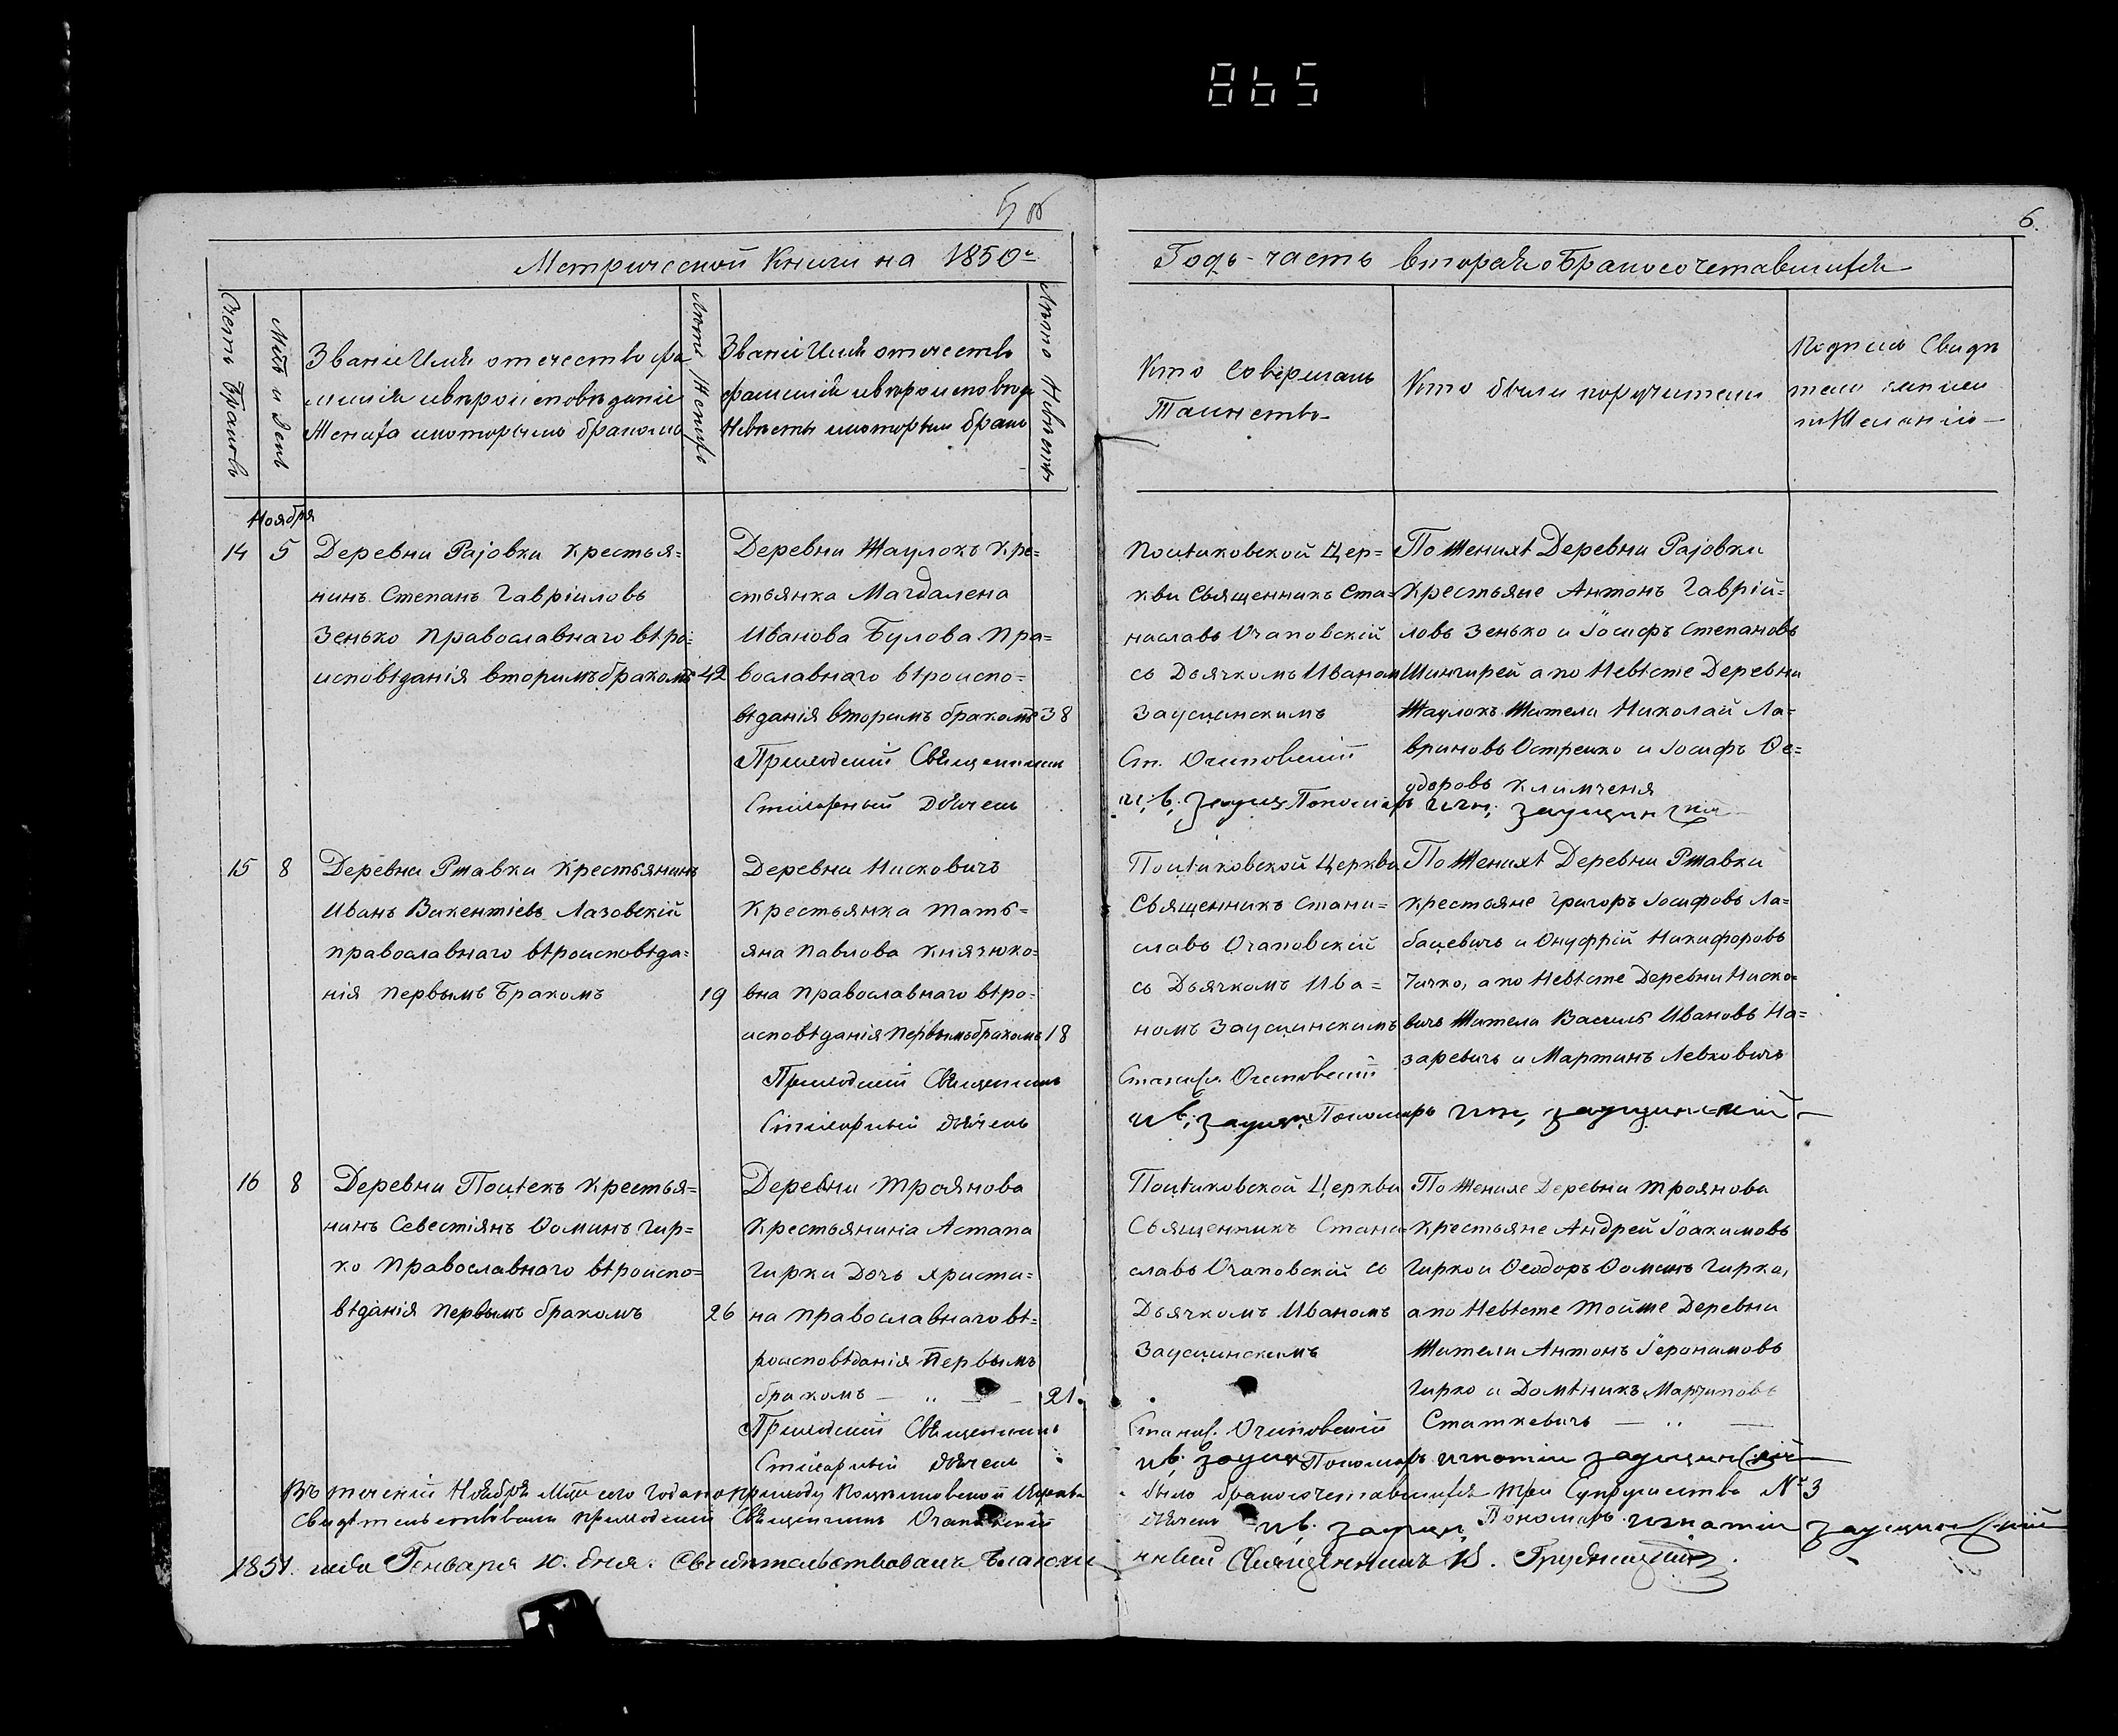 865
5 об
6.
Метрической Книги на 1850г
Годъ часть вторая о Бракосочетавшихся
Счетъ Браковъ
Мѣс. и день
Званіе Имя отечество фа
милія и вѣроисповѣданіе
Жениха и которымъ бракомъ
Лѣта Жениха
Званіе Имя отечество
фамилія и вѣроисповѣд
Невѣсты и которым брако
Лѣта Невѣсты
Кто Совершалъ
Таинство
Кто были поручители
Подписи Свидѣ
телей записи
по Желанію
Ноября
14
5
Деревни Раіовки Крестья=
нинъ Степанъ Гавріиловъ
Зенько Православнаго вѣро=
исповѣданія вторимъ бракомъ
42
Деревни Жаулокъ Кре=
стьянка Магдалена
Иванова Булова Пра=
вославнаго вѣроиспо=
вѣданія вторимъ бракомъ
38
Приходскій Священникъ
Стихарный Дьячекъ
Поцѣйковской Цер=
кви Священникъ Ста=
ниславъ Очаповскій
съ Дьячкомъ Иваном
Заусцинскимъ
Ст. Очаповскій
Ив. Заусц Пономаръ Игн. Заусцинскій
По Женихѣ Деревни Раіовки
Крестьяне Антонъ Гаврій=
ловъ Зенько и Іосифъ Степановъ
Шингирей а по Невѣсте Деревни
Жаулокъ Жители Николай Ла=
вриновъ Острейко и Іосифъ Ѳе=
одоровъ Климченя
15
8
Деревни Ржавки Крестьянинъ
Иванъ Викентіевъ Лазовскій
православнаго вѣроисповѣда=
нія первымъ Бракомъ
19
Деревни Нисковичъ
Крестьянка Татѣ=
яна Павлова Князюко=
вна Православнаго вѣро=
исповѣданія Первымъ бракомъ
18
Приходскій Священникъ
Стихарный Дьячекъ
Поцѣйковской Церкви
Священникъ Стани=
славъ Очаповскій
съ Дьячкомъ Ива=
номъ Заусцинскимъ
Станисл. Очаповскій
Ив. Заусц. Пономаръ Игн. Заусцинскій
По Женихѣ Деревни Ржавки
Крестьяне Григоръ Іосифовъ Ла=
бацевичъ и Онуфрій Никифоровъ
Чичко, а по Невѣсте Деревни Ниско=
вичъ Жители Василь Ивановъ На=
заревичъ и Мартинъ Левковичъ
16
8
Деревни Поцѣекъ Крестья=
нинъ Севестіянъ Ѳоминъ Гир=
ко Православнаго вѣроиспо=
вѣданія Первымъ бракомъ
26
Деревни Троянова
Крестьянина Астапа
Гирки Дочь Христи=
на Православнаго вѣ=
роисповѣданія Первымъ
бракомъ
21.
Приходскій Священникъ
Стихарный Дьячекъ
Поцѣйковской Церкви
Священникъ Стани
славъ Очаповскій съ
Дьячкомъ Иваномъ
Заусцинскимъ
Станисл. Очаповскій
Ив. Заусц Пономаръ Игнатій Заусцинскій
По Женихе Деревни Троянова
Крестьяне Андрей Іоакимовъ
Гирко и Ѳеодоръ Ѳоминъ Гирко,
а по Невѣсте Тойже Деревни
Жители Антонъ Іеронимовъ
Гирко и Домѣникъ Марчиновъ
Статкевичъ
Въ теченіи Ноября Мца сего года по приходу Поцѣйковской Церкви было бракосочетавшихся три Супружества № 3
Свидѣтельствовали приходскій Священникъ Очаповскій Дьячекъ Ив. Заусц Пономаръ Игнатій Заусцинскій
1851. года Генваря 10. дня. Свидѣтельствовалъ Благочинный Священникъ В. Грудницкій